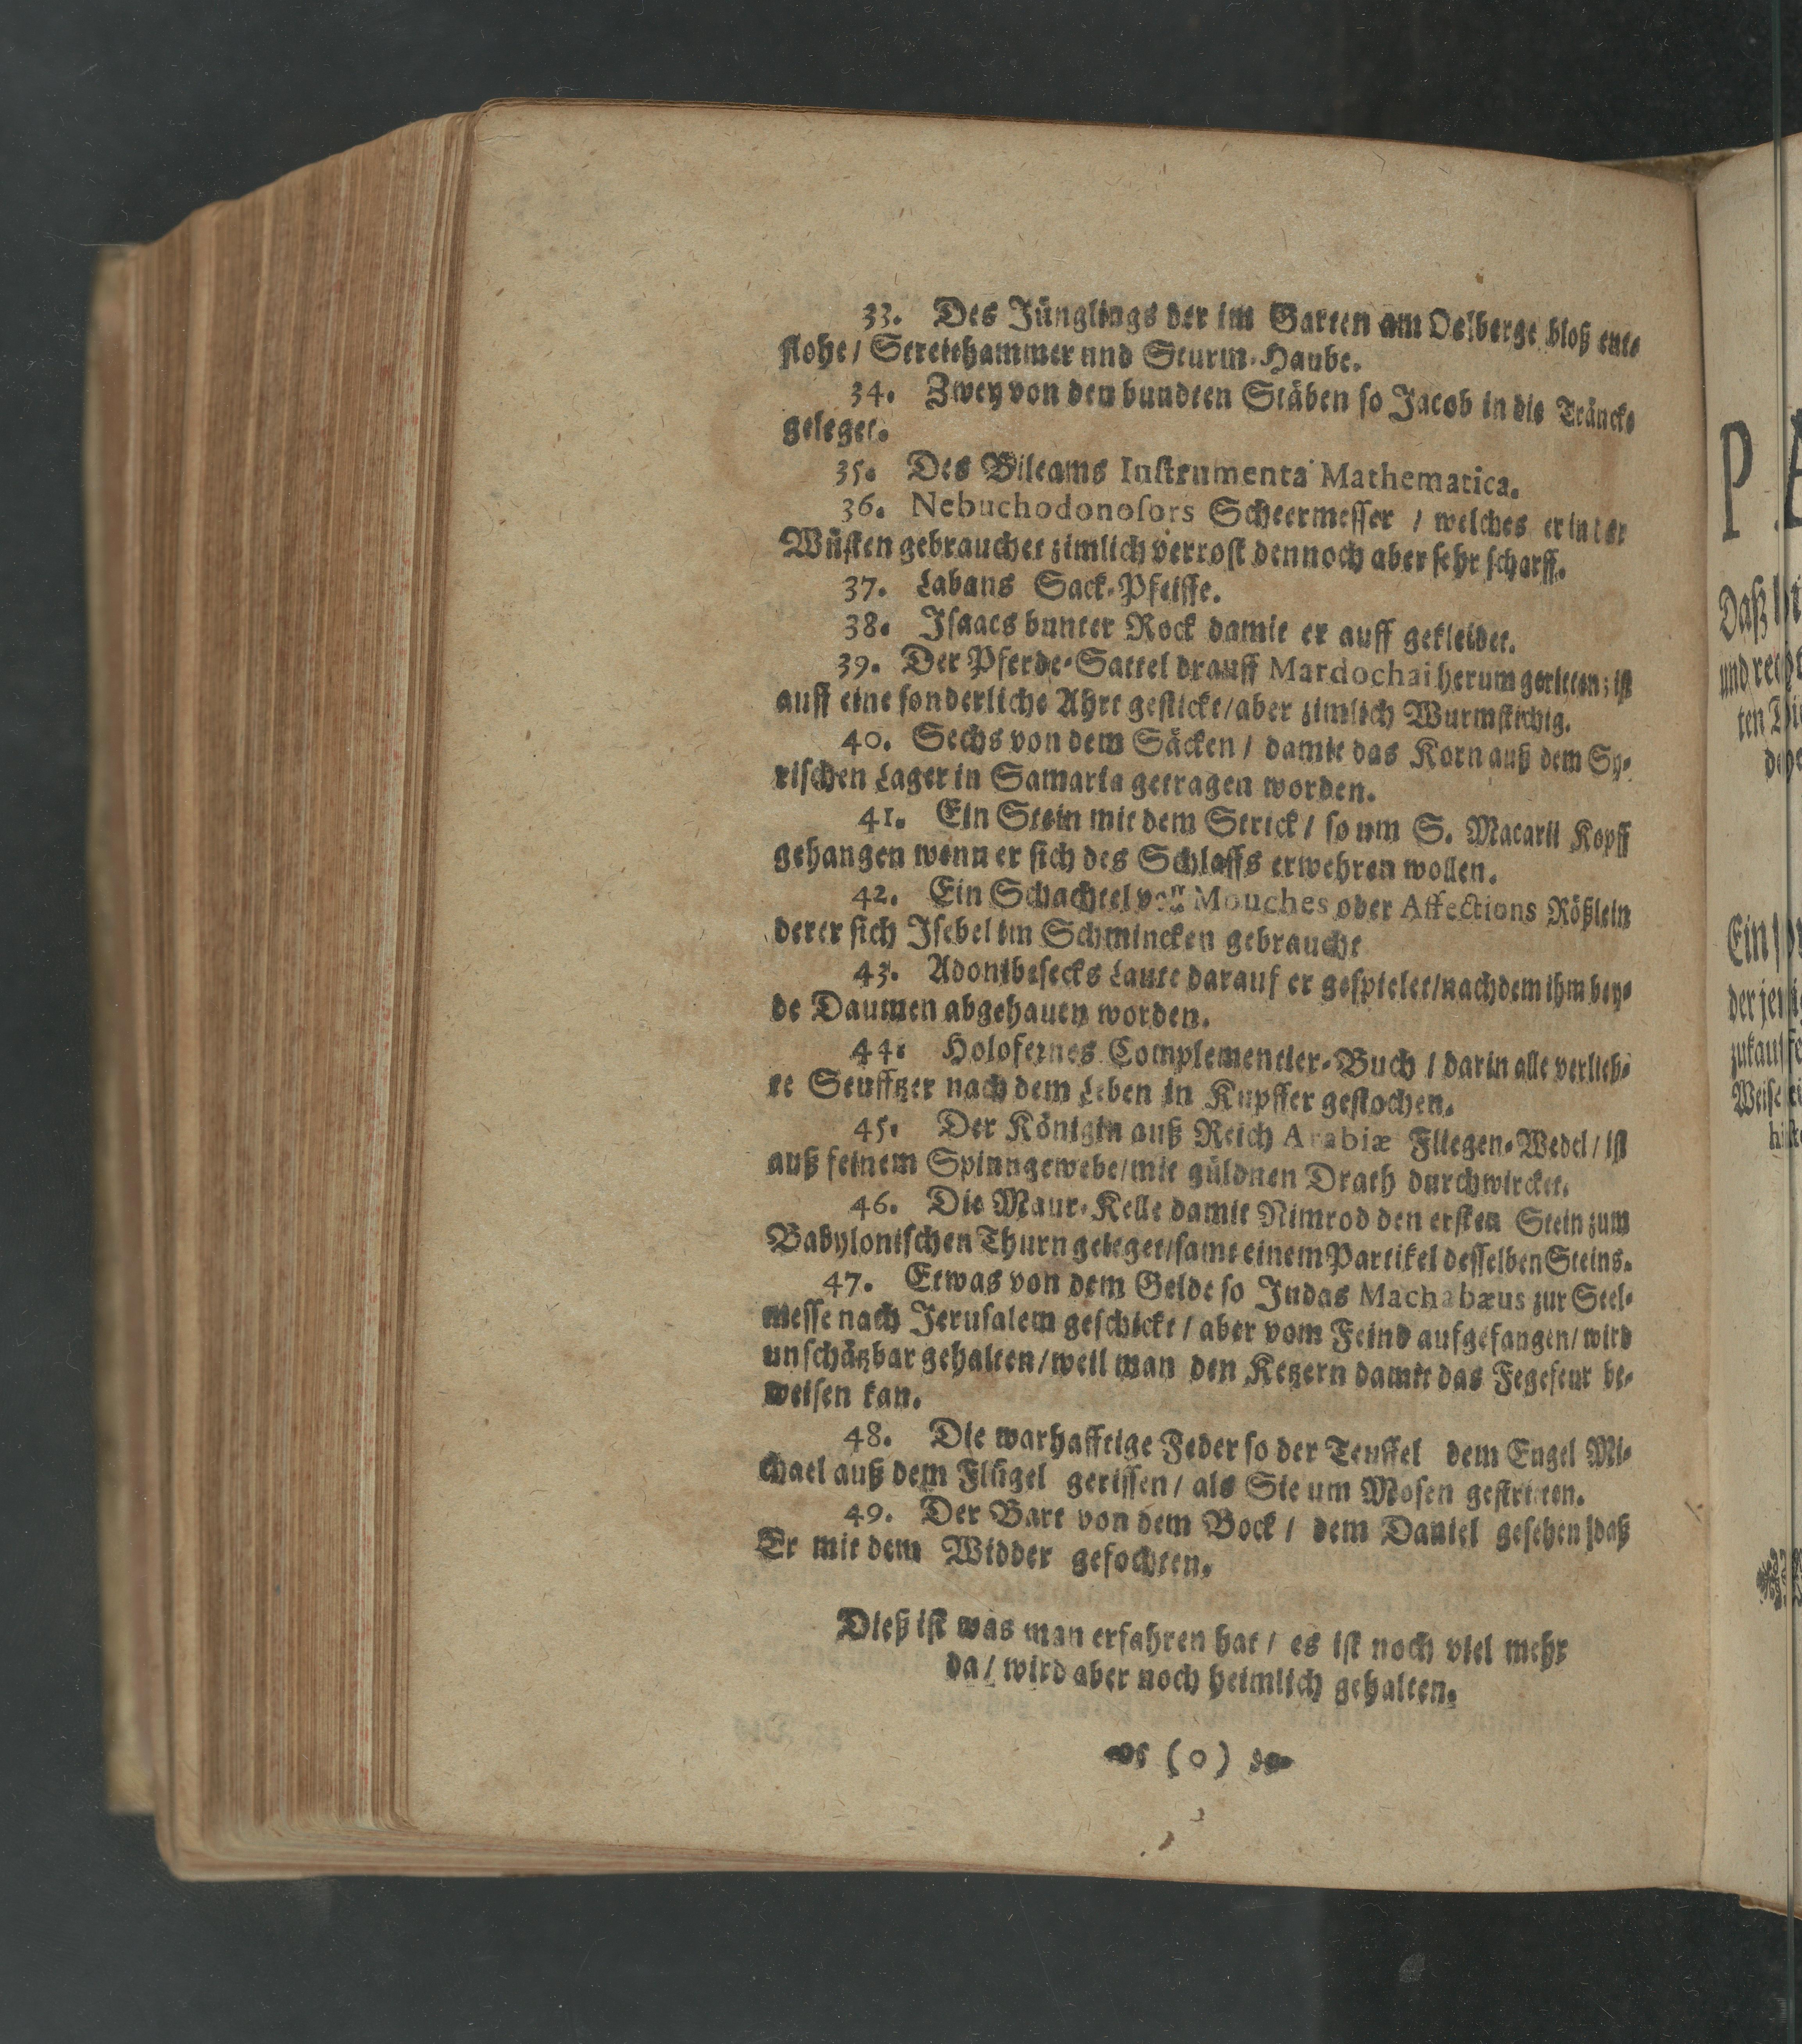 33. Des Jünglings der im Garten am Oelberge bloß ent-
flohe / Streithammer und Sturm-Haube.
34. Zwey von den bundten Stäben so Jacob in die Träncke
geleget.
35. Des Bileams Instrumenta Mathematica.
36. Nebuchodonosors Scheermesser / welches er in der
Wüsten gebrauchet zimlich verrost dennoch aber sehr scharff.
37. Labans Sack-Pfeiffe.
38. Isaacs bunter Rock damit er auff gekleidet.
39. Der Pferde-Sattel drauff Mardochai herum geritten; ist
auff eine sonderliche Ahrt gestickt / aber zimlich Wurmstichig.
40. Sechs von dem Säcken / damit das Korn auß dem Sy-
rischen Lager in Samaria getragen worden.
41. Ein Stein mit dem Strick / so um S. Macarii Kopff
gehangen wenn er sich des Schlaffs erwehren wollen.
42. Ein Schachtel voll Mouches oder Affections Rößlein
derer sich Isebel im Schmincken gebraucht
43. Adonibesecks Laute darauf er gespielet / nachdem ihm bey-
de Daumen abgehauen worden.
44. Holofernes Complementier-Buch / darin alle verlieb-
te Seufftzer nach dem Leben in Kupffer gestochen.
45. Der Königin auß Reich Arabiæ Fliegen-Wedel / ist
auß feinem Spinngewebe / mit güldnen Drath durchwircket.
46. Die Maur-Kelle damit Nimrod den ersten Stein zum
Babylonischen Thurn geleget / samt einem Partikel desselben Steins.
47. Etwas von dem Gelde so Judas Machabæus zur Seel-
messe nach Jerusalem geschickt / aber vom Feind aufgefangen / wird
unschätzbar gehalten / weil man den Ketzern damit das Fegefeur be-
weisen kan.
48. Die warhafftige Feder so der Teuffel dem Engel Mi-
chael auß dem Flügel gerissen / als Sie um Mosen gestritten.
49. Der Bart von dem Bock / dem Daniel gesehen / daß
Er mit dem Widder gefochten.
Dieß ist was man erfahren hat / es ist noch viel mehr
da / wird aber noch heimlich gehalten.
(0)
P A
Daß
und
ten
Ein
der
Weise